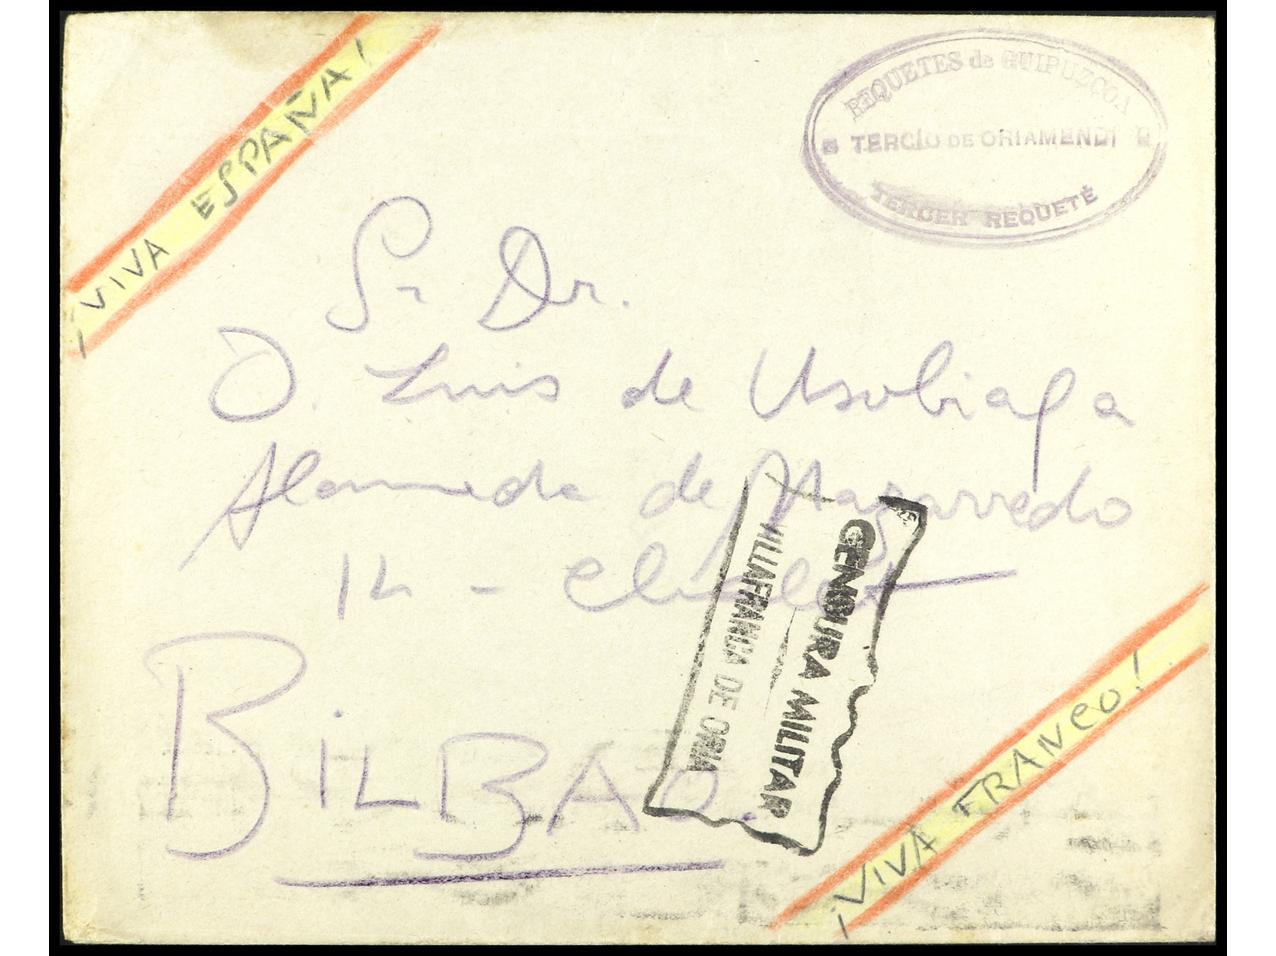 ¡VIVA ESPAÑA!
REQUETES de GUIPUZCOA
TERCIO DE ORIAMENDI
TERCER REQUETÉ
Sr Dr.
D. Luis de Usobiaga
Alameda de Mazarredo
14 - Chalet
BiLBAO.
CENSURA MILITAR
VILLAFRANCA DE ORIA
¡VIVA FRANCO!